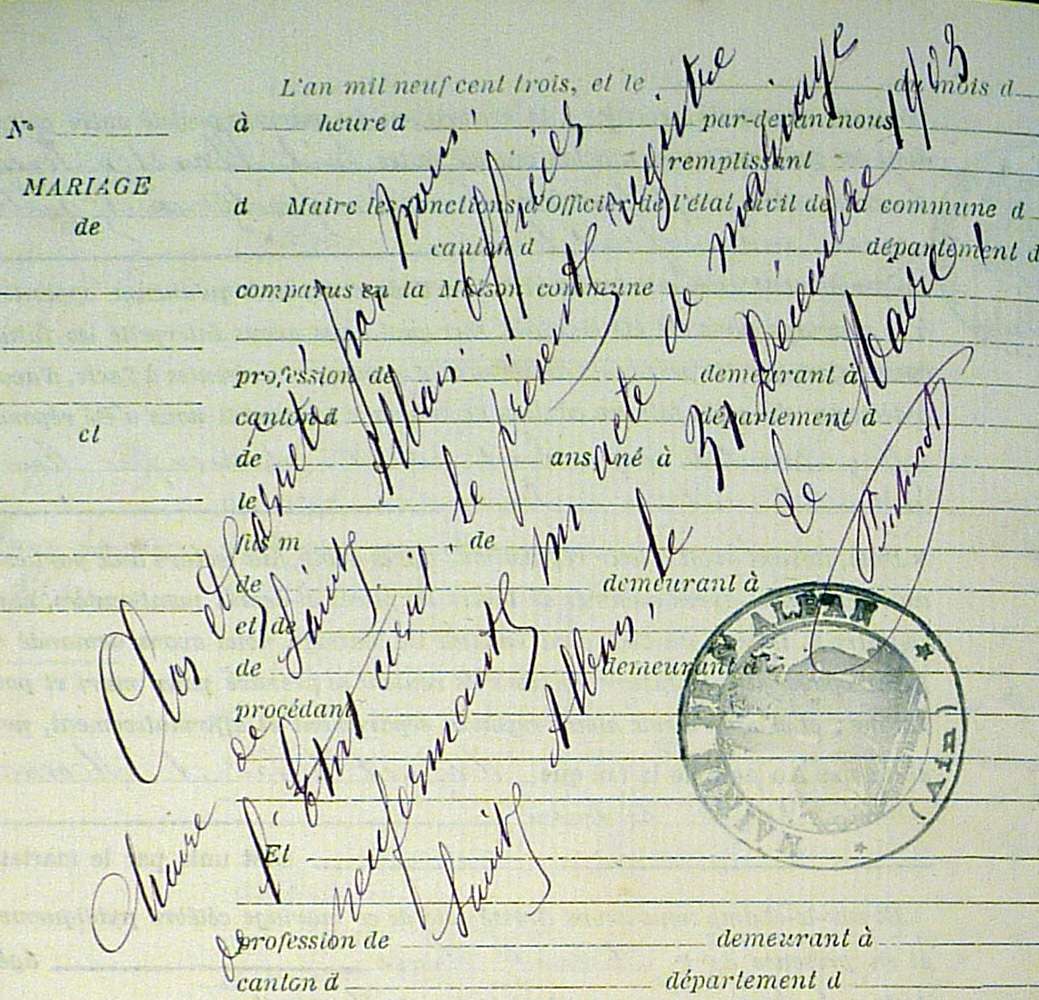 L'an mil neuf cent trois, et le du mois d
N° à heure d par-devant nous
remplissant
MARIAGE
d Maire les fonctions d'Officier de l'état civil de la commune d
de
canton d département d
comparus en la Maison commune
profession de demeurant à
canton d département d
et
de ans, né à
le
fils m , de
de demeurant à
et de
de demeurant à
procédant
Et
profession de demeurant à
canton d département d
Clos et arrêté par nous
Maire de Saint Alban officier
de l'Etat civil le présent registre
ne renfermant
acte de mariage
Saint Alban, le 31 Décembre 1903
Le Maire
MAIRIE DE ST ALBAN